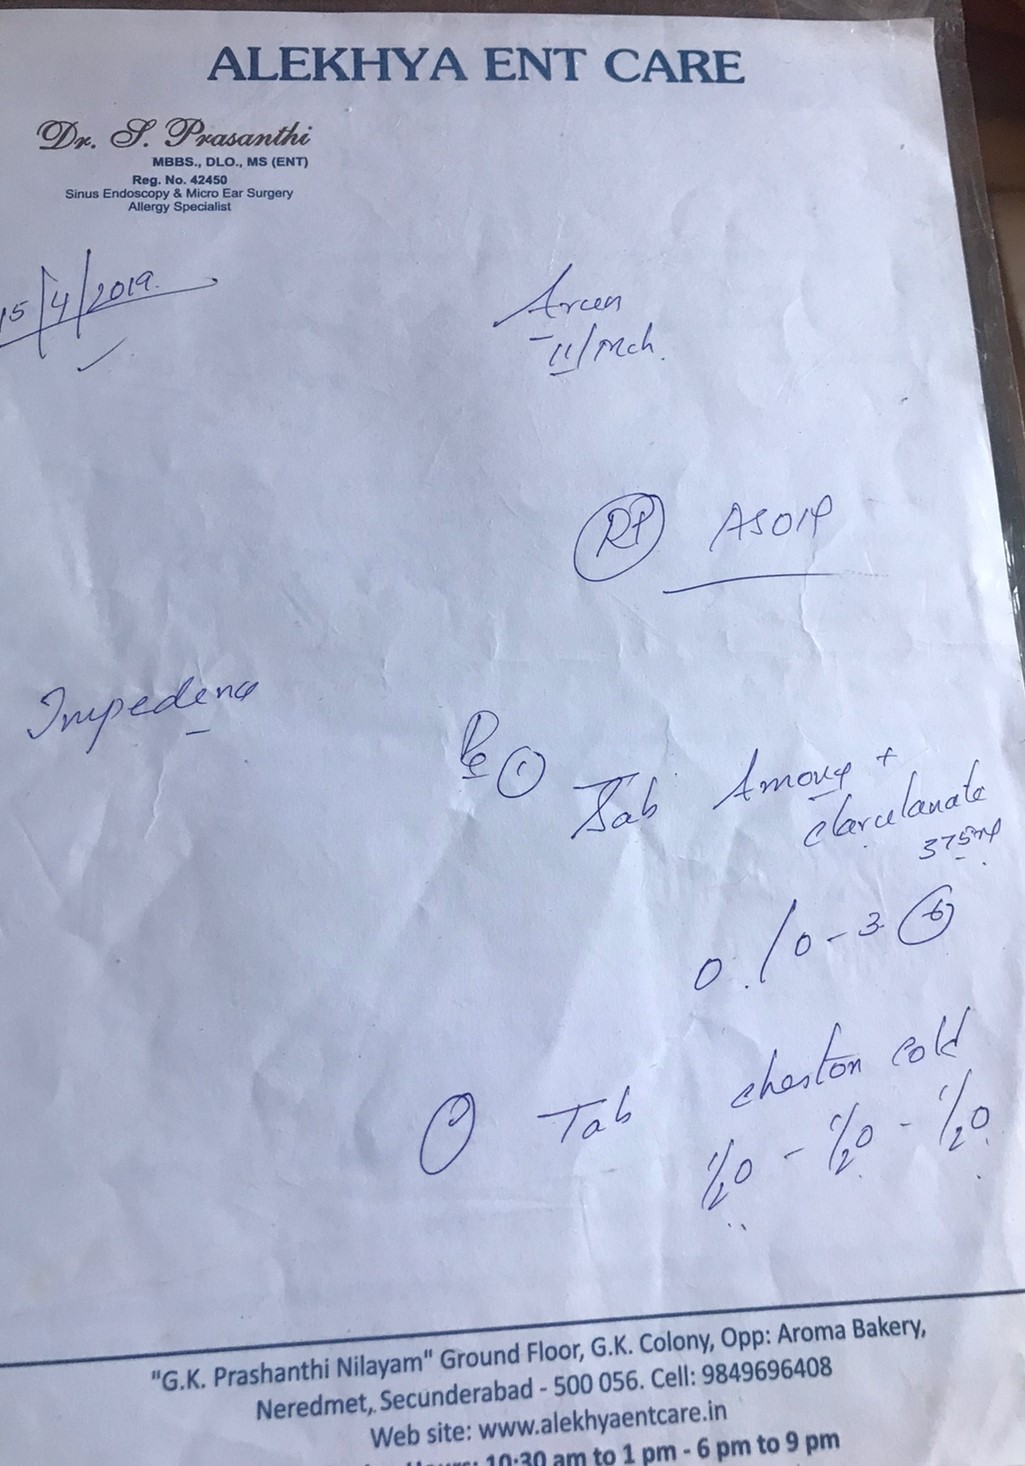 ALEKHYA ENT CARE
Dr. S. Prasanthi
MBBS., DLO., MS (ENT)
Reg. No. 42450
Sinus Endoscopy & Micro Ear Surgery
Allergy Specialist
15/4/2019.
11/Mch.
Tab
375mg
0 / 0 - 3
Tab cheston cold
1/20 - 1/20 - 1/20
"G.K. Prashanthi Nilayam" Ground Floor, G.K. Colony, Opp: Aroma Bakery,
Neredmet, Secunderabad - 500 056. Cell: 9849696408
Web site: www.alekhyaentcare.in
10:30 am to 1 pm - 6 pm to 9 pm